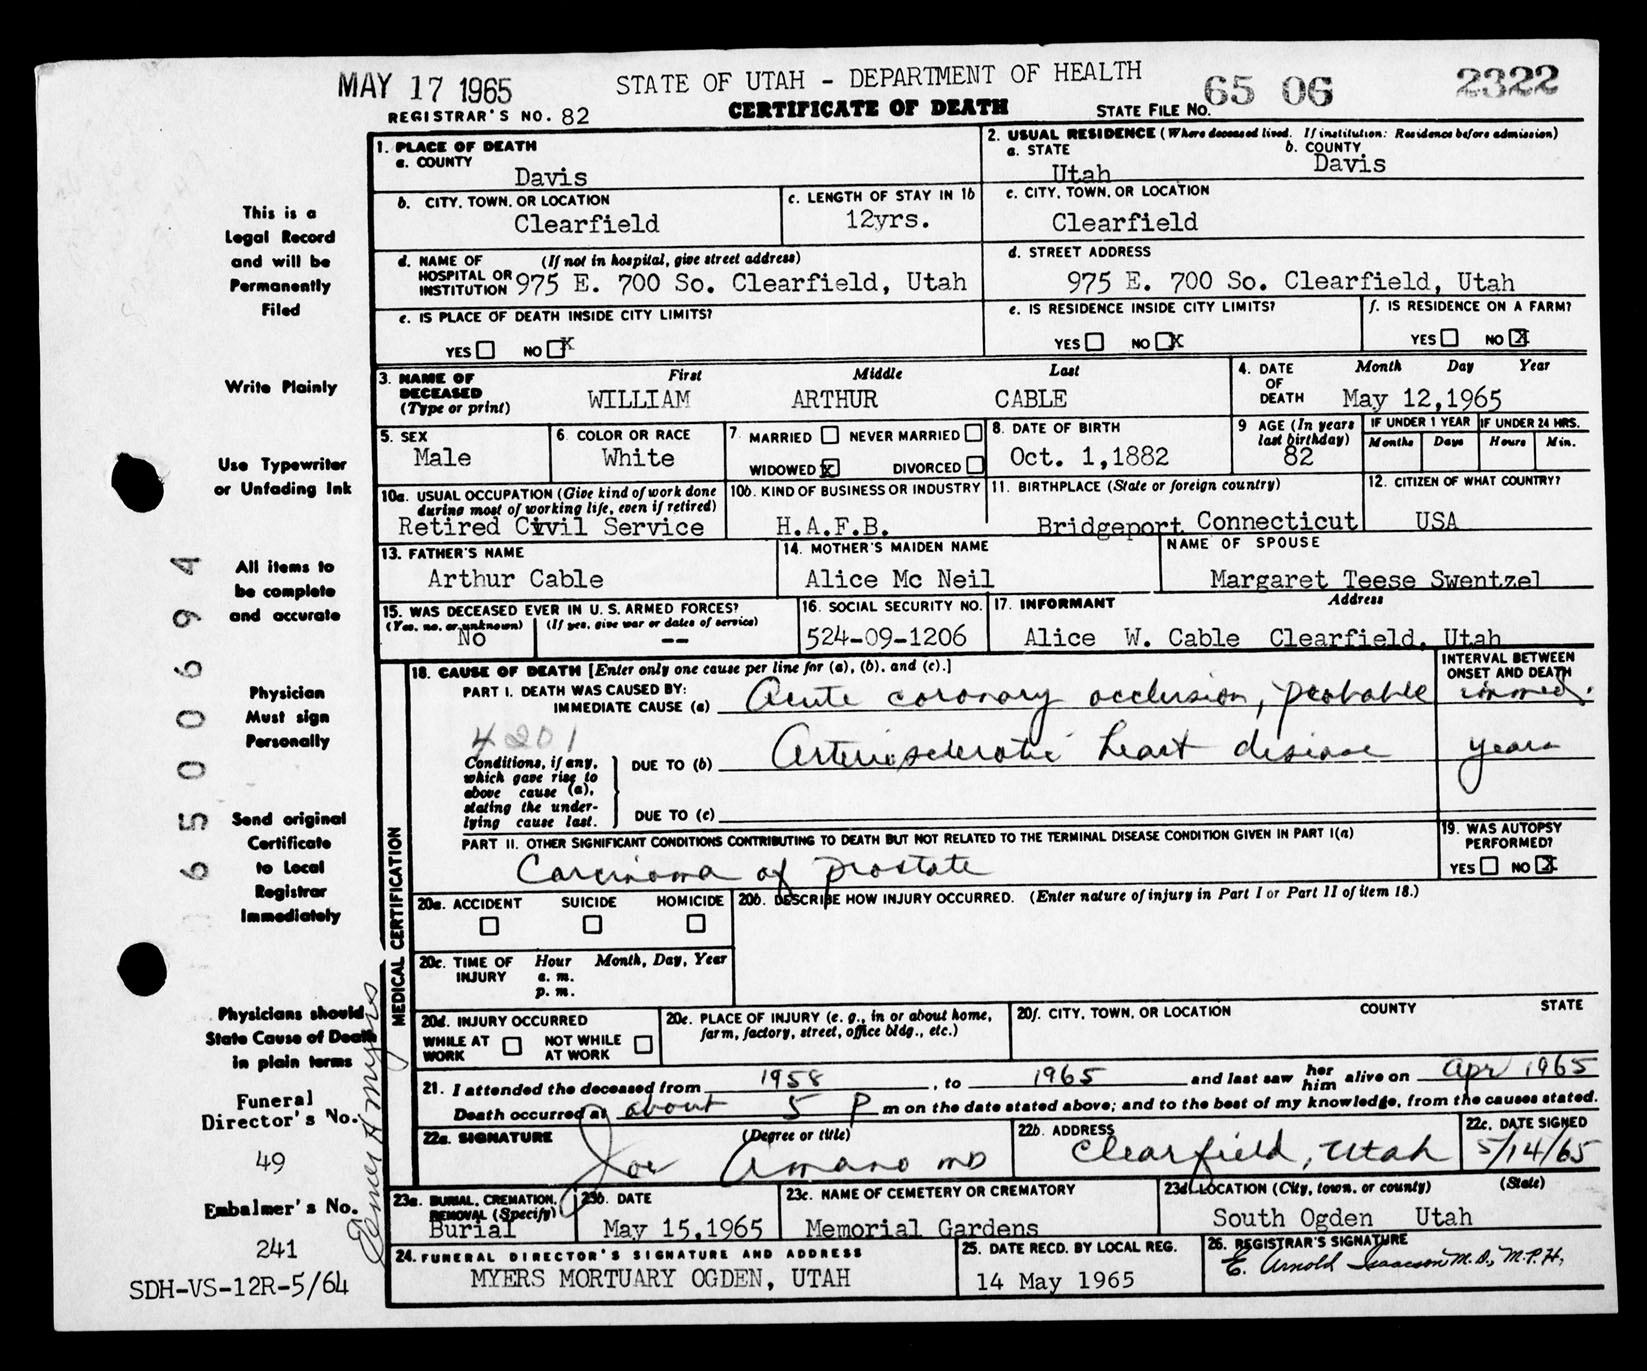 MAY 17 1965 STATE OF UTAH - DEPARTMENT OF HEALTH 65 06 2322
REGISTRAR'S NO. 82 CERTIFICATE OF DEATH STATE FILE NO.
1. PLACE OF DEATH
a. COUNTY
Davis
2. USUAL RESIDENCE (Where deceased lived. If institution: Residence before admission)
a. STATE b. COUNTY
Utah Davis
b. CITY, TOWN, OR LOCATION
Clearfield
c. LENGTH OF STAY IN 1b
12yrs.
c. CITY, TOWN, OR LOCATION
Clearfield
d. NAME OF (If not in hospital, give street address)
HOSPITAL OR
INSTITUTION 975 E. 700 So. Clearfield, Utah
d. STREET ADDRESS
975 E. 700 So. Clearfield, Utah
e. IS PLACE OF DEATH INSIDE CITY LIMITS?
YES NO X
e. IS RESIDENCE INSIDE CITY LIMITS?
YES NO X
f. IS RESIDENCE ON A FARM?
YES NO X
3. NAME OF First Middle Last
DECEASED
(Type or print) WILLIAM ARTHUR CABLE
4. DATE Month Day Year
OF
DEATH May 12,1965
5. SEX
Male
6. COLOR OR RACE
White
7. MARRIED NEVER MARRIED
WIDOWED X DIVORCED
8. DATE OF BIRTH
Oct. 1,1882
9 AGE (In years
last birthday)
82
IF UNDER 1 YEAR IF UNDER 24 HRS.
Months Days Hours Min.
10a. USUAL OCCUPATION (Give kind of work done
during most of working life, even if retired)
Retired Civil Service
10b. KIND OF BUSINESS OR INDUSTRY
H.A.F.B.
11. BIRTHPLACE (State or foreign country)
Bridgeport Connecticut
12. CITIZEN OF WHAT COUNTRY?
USA
13. FATHER'S NAME
Arthur Cable
14. MOTHER'S MAIDEN NAME
Alice Mc Neil
NAME OF SPOUSE
Margaret Teese Swentzel
15. WAS DECEASED EVER IN U. S. ARMED FORCES?
(Yes, no, or unknown) (If yes, give war or dates of service)
No --
16. SOCIAL SECURITY NO.
524-09-1206
17. INFORMANT Address
Alice W. Cable Clearfield, Utah
18. CAUSE OF DEATH [Enter only one cause per line for (a), (b), and (c).]
INTERVAL BETWEEN
ONSET AND DEATH
PART I. DEATH WAS CAUSED BY:
IMMEDIATE CAUSE (a) Acute coronary occlusion, probable immed.
4201
Conditions, if any,
which gave rise to
above cause (a),
stating the under-
lying cause last.
DUE TO (b) Arteriosclerotic heart disease years
DUE TO (c)
PART II. OTHER SIGNIFICANT CONDITIONS CONTRIBUTING TO DEATH BUT NOT RELATED TO THE TERMINAL DISEASE CONDITION GIVEN IN PART I(a)
Carcinoma of prostate
19. WAS AUTOPSY
PERFORMED?
YES NO X
20a. ACCIDENT SUICIDE HOMICIDE
20b. DESCRIBE HOW INJURY OCCURRED. (Enter nature of injury in Part I or Part II of item 18.)
20c. TIME OF Hour Month, Day, Year
INJURY a. m.
p. m.
20d. INJURY OCCURRED
WHILE AT NOT WHILE
WORK AT WORK
20e. PLACE OF INJURY (e. g., in or about home,
farm, factory, street, office bldg., etc.)
20f. CITY, TOWN, OR LOCATION COUNTY STATE
21. I attended the deceased from 1958, to 1965 and last saw her him alive on Apr 1965
Death occurred at about 5 P m on the date stated above; and to the best of my knowledge, from the causes stated.
22a. SIGNATURE (Degree or title)
Joe Amano MD
22b. ADDRESS
Clearfield, Utah
22c. DATE SIGNED
5/14/65
23a. BURIAL, CREMATION,
REMOVAL (Specify)
Burial
23b. DATE
May 15,1965
23c. NAME OF CEMETERY OR CREMATORY
Memorial Gardens
23d. LOCATION (City, town, or county) (State)
South Ogden Utah
24. FUNERAL DIRECTOR'S SIGNATURE AND ADDRESS
MYERS MORTUARY OGDEN, UTAH
25. DATE RECD. BY LOCAL REG.
14 May 1965
26. REGISTRAR'S SIGNATURE
E. Arnold Isaacson M.D., M.P.H.
MEDICAL CERTIFICATION
This is a
Legal Record
and will be
Permanently
Filed
Write Plainly
Use Typewriter
or Unfading Ink
All items to
be complete
and accurate
Physician
Must sign
Personally
Send original
Certificate
to Local
Registrar
Immediately
Physicians should
State Cause of Death
in plain terms
Funeral
Director's No.
49
Embalmer's No.
241
SDH-VS-12R-5/64
6500694